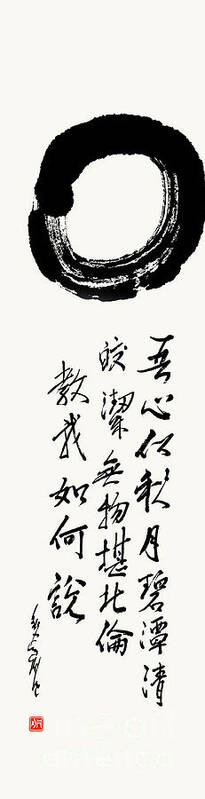 吾心似秋月碧潭清
皎潔無物堪比倫
教我如何說